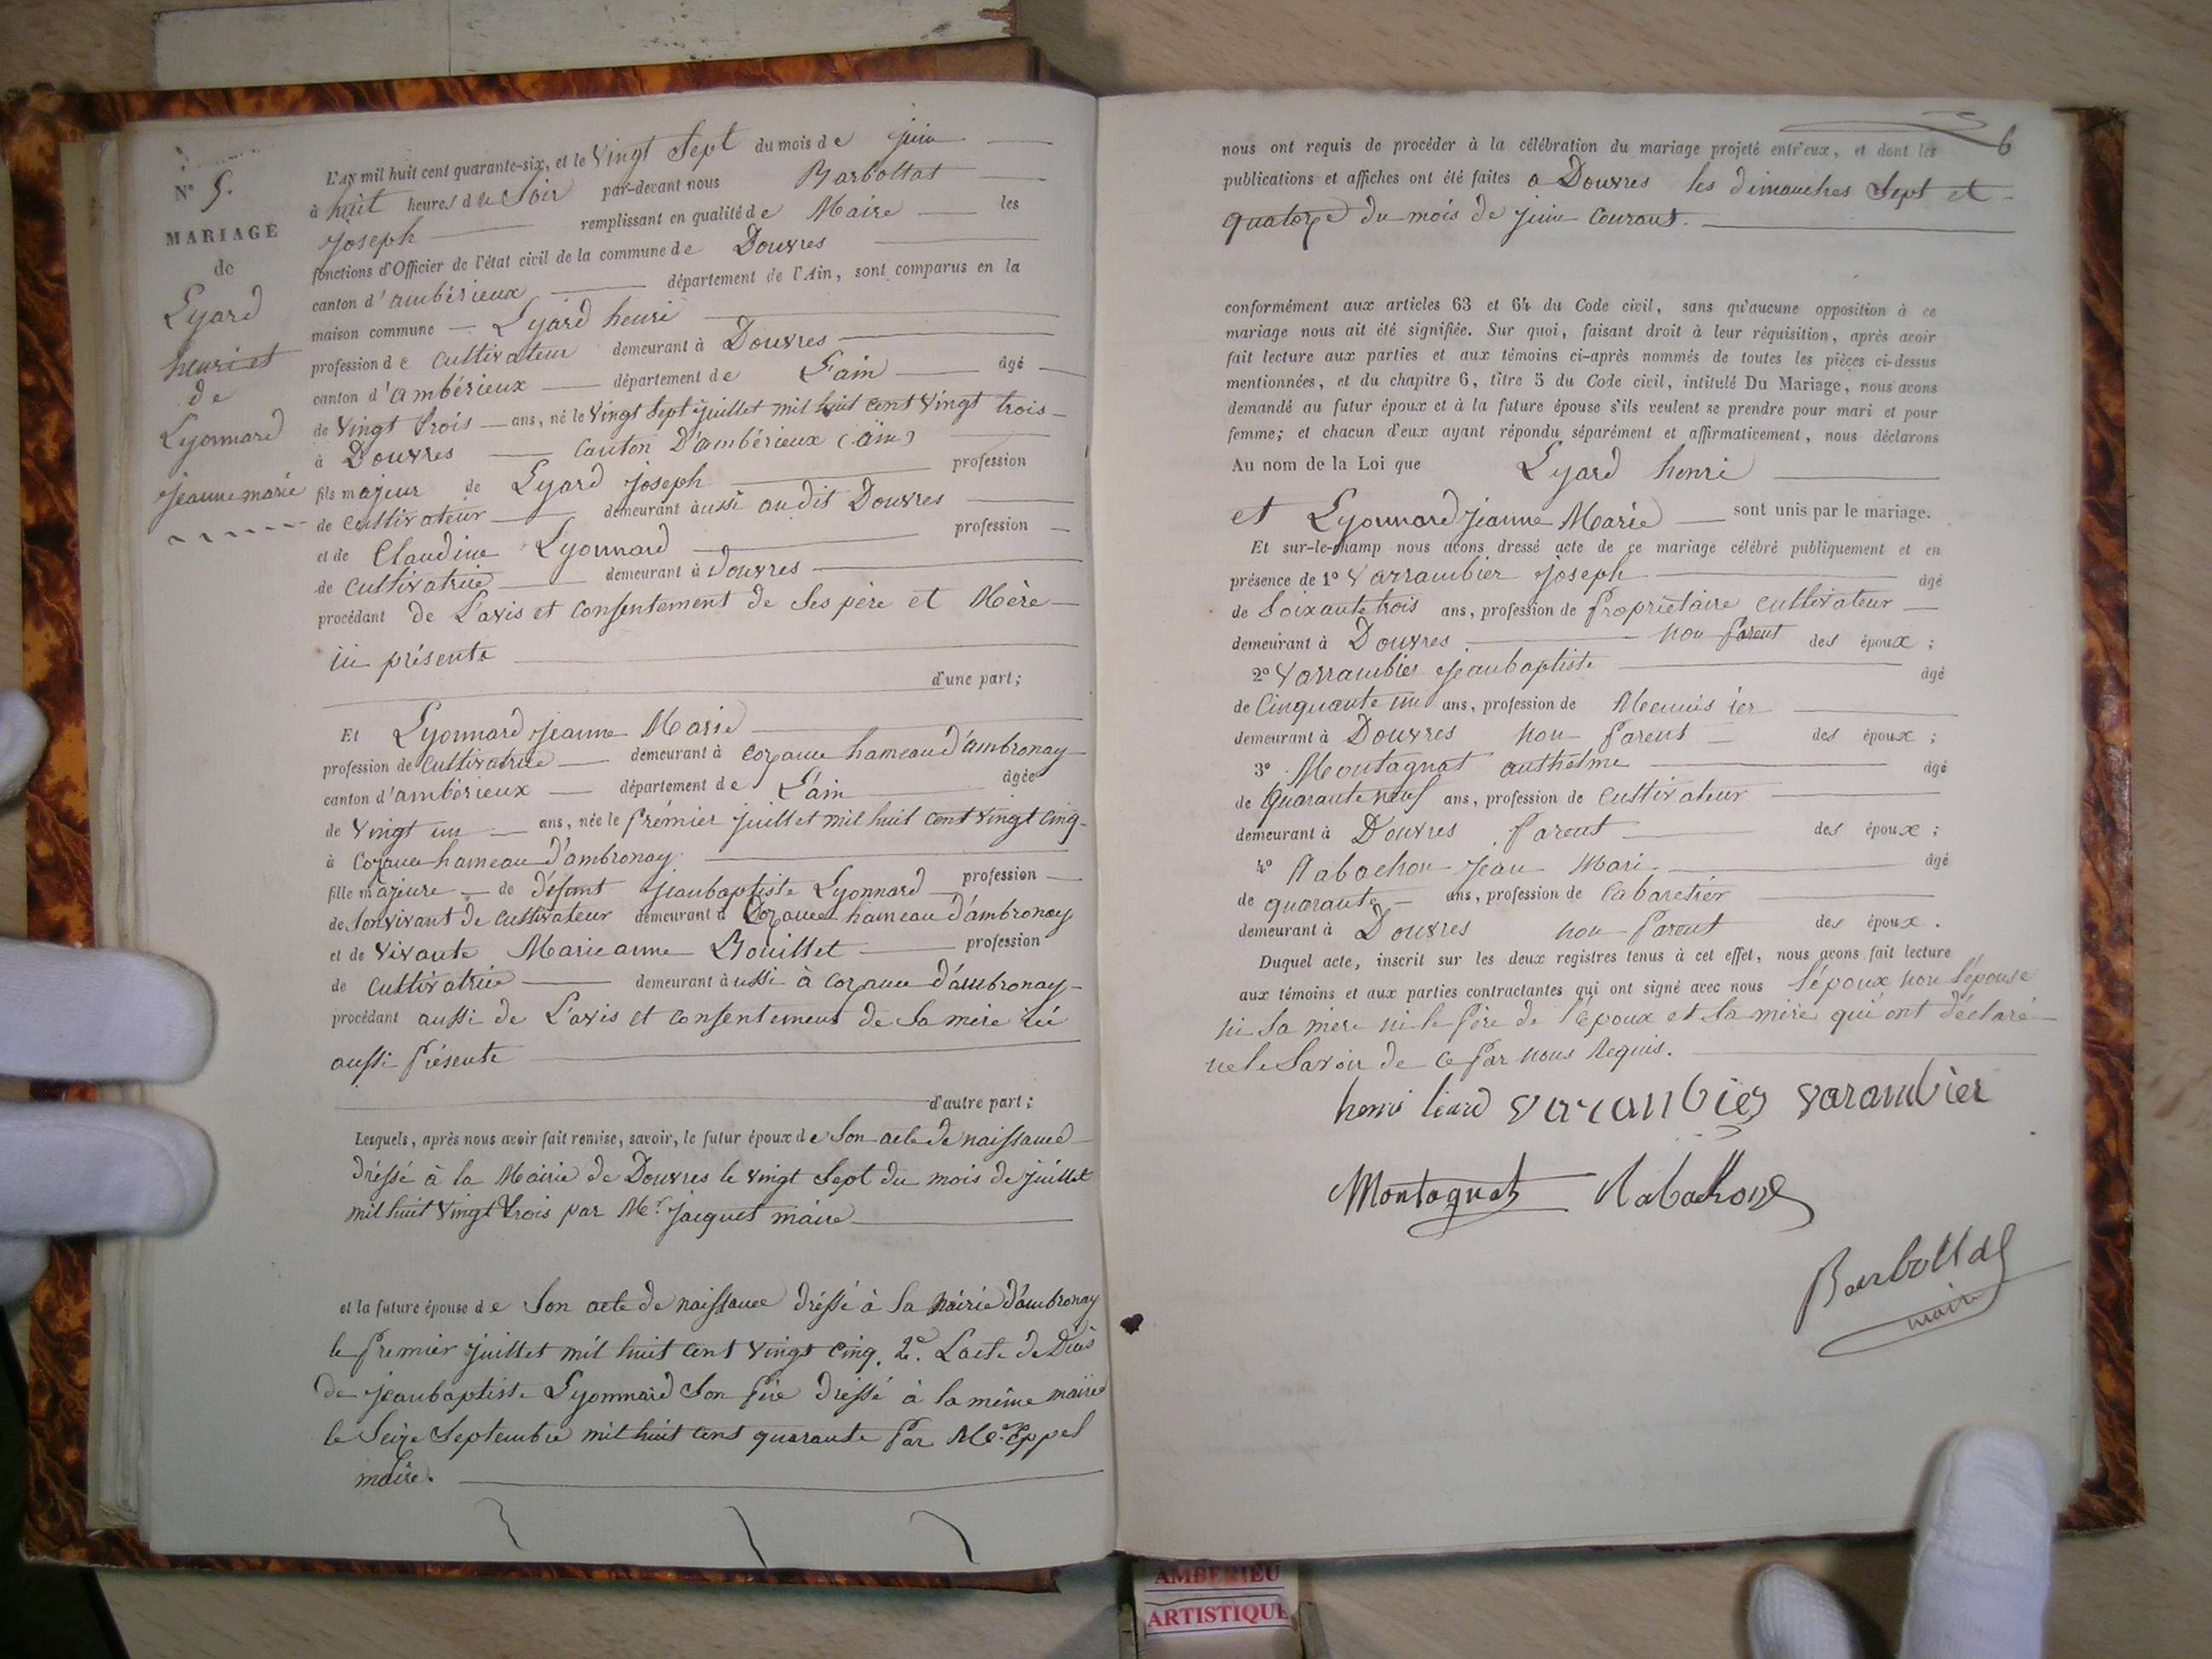 N° 5.
MARIAGE
de
Lyard
henri et
de
Lyonnard
jeanne marie
L'AN mil huit cent quarante-six, et le vingt Sept du mois de juin
à huit heures du Soir par-devant nous Barbollat
joseph remplissant en qualité de Maire les
fonctions d'Officier de l'état civil de la commune de Douvres
canton d'ambérieux département de l'Ain, sont comparus en la
maison commune Lyard henri
profession de cultivateur demeurant à Douvres
canton d'ambérieux département de L'ain âgé
de vingt trois ans, né le vingt Sept juillet mil huit cent vingt trois
à Douvres canton D'ambérieux (ain)
fils majeur de Lyard joseph profession
de cultivateur demeurant aussi audit Douvres
et de Claudine Lyonnard profession
de cultivatrice demeurant à Douvres
procédant de L'avis et consentement de Ses père et Mère
ici présents
d'une part;
Et Lyonnard jeanne Marie
profession de cultivatrice demeurant à cozance hameau d'ambronay
canton d'ambérieux département de L'ain âgée
de vingt un ans, née le premier juillet mil huit cent vingt cinq
à cozance hameau d'ambronay
fille majeure de défunt jeanbaptiste Lyonnard profession
de Sonvivant de cultivateur demeurant à Cozance hameau d'ambronay
et de vivante Marieanne Bouillet profession
de cultivatrice demeurant aussi à cozance d'ambronay
procédant aussi de L'avis et consentement de Sa mère ici
aussi présente
d'autre part;
Lesquels, après nous avoir fait remise, savoir, le futur époux de Son acte de naissance
dréssé à la Mairie de Douvres le vingt Sept du mois de juillet
mil huit vingt trois par Mr. jacquet maire
et la future épouse de Son acte de naissance dréssé à la mairie d'ambronay
le premier juillet mil huit cent vingt cinq. 2e. L'acte de Décès
de jeanbaptiste Lyonnard Son père dressé à la même mairie
le Seize Septembre mil huit cent quarante par Mr. Eppel
maire.
6
nous ont requis de procéder à la célébration du mariage projeté entr'eux, et dont les
publications et affiches ont été faites a Douvres les dimanches Sept et
quatorze du mois de juin courant.
conformément aux articles 63 et 64 du Code civil, sans qu'aucune opposition à ce
mariage nous ait été signifiée. Sur quoi, faisant droit à leur réquisition, après avoir
fait lecture aux parties et aux témoins ci-après nommés de toutes les pièces ci-dessus
mentionnées, et du chapitre 6, titre 5 du Code civil, intitulé Du Mariage, nous avons
demandé au futur époux et à la future épouse s'ils veulent se prendre pour mari et pour
femme; et chacun d'eux ayant répondu séparément et affirmativement, nous déclarons
Au nom de la Loi que Lyard henri
et Lyonnard jeanne Marie sont unis par le mariage.
Et sur-le-champ nous avons dressé acte de ce mariage célébré publiquement et en
présence de 1° Varrambier joseph âgé
de Soixante trois ans, profession de propriétaire cultivateur
demeurant à Douvres non parent des époux;
2° Varrambier jeanbaptiste âgé
de Cinquante un ans, profession de Menuisier
demeurant à Douvres non parent des époux;
3° Montagnat anthelme âgé
de Quarante neuf ans, profession de cultivateur
demeurant à Douvres parent des époux;
4° Rabachon jean Marie âgé
de quarante ans, profession de Cabaretier
demeurant à Douvres non parent des époux.
Duquel acte, inscrit sur les deux registres tenus à cet effet, nous avons fait lecture
aux témoins et aux parties contractantes qui ont signé avec nous l'époux non l'épouse
ni Sa mère ni le père de l'époux et Sa mère qui ont déclaré
ne le Savoir de ce par nous Requis.
henri liard varambier varambier
Montagnat Rabachon
Barbollat
maire
AMBERIEU
ARTISTIQUE